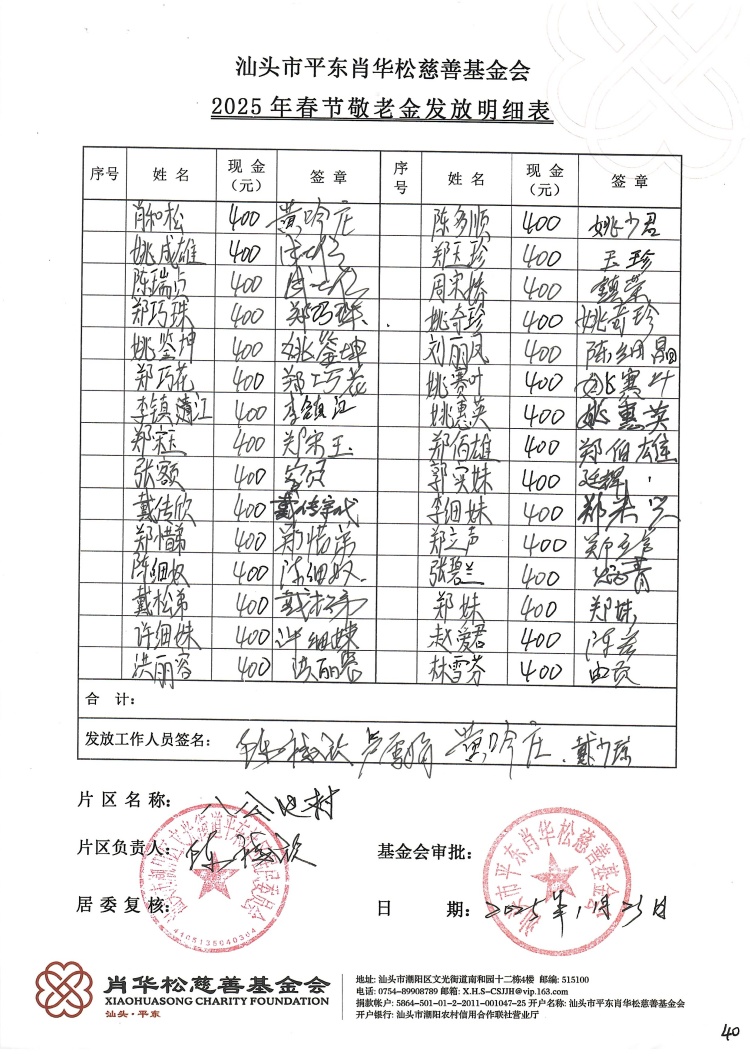 汕头市平东肖华松慈善基金会
2025年春节敬老金发放明细表
序号 姓名 现金（元） 签章 序号 姓名 现金（元） 签章
肖和松 400 黄吟庄 陈多顺 400 姚少君
姚成雄 400 郑玉珍 400 玉珍
陈瑞占 400 周宋 400 镇荣
郑巧珠 400 郑巧珠 姚奇珍 400 姚奇珍
姚鉴坤 400 姚鉴坤 刘丽凤 400 陈细昌
郑巧花 400 郑巧花 姚赛叶 400 姚赛叶
李镇清江 400 李镇江 姚惠英 400 姚惠英
郑宋玉 400 郑宋玉 郑伯雄 400 郑伯雄
张额 400 郭实妹 400 廷辉
戴传欣 400 戴传 李细妹 400 郑
郑惜弟 400 郑惜弟 郑立声 400 郑立声
陈细奴 400 陈细奴 张碧兰 400 菁
戴松弟 400 戴松弟 郑妹 400 郑妹
许细妹 400 许细妹 赵爱君 400 陈
洪丽容 400 洪丽容 林雪芬 400
合 计：
发放工作人员签名： 黄吟庄 戴少琼
片区名称： 八公地村
片区负责人：
基金会审批：
居委复核：
日 期： 2025年1月23日
4405135040304
汕头市平东肖华松慈善基金会
肖华松慈善基金会
XIAOHUASONG CHARITY FOUNDATION
汕头·平东
地址: 汕头市潮阳区文光街道南和园十二栋4楼 邮编: 515100
电话: 0754-89908789 邮箱: X.H.S-CSJJH@vip.163.com
捐款帐户: 5864-501-01-2-2011-001047-25 开户名称: 汕头市平东肖华松慈善基金会
开户银行: 汕头市潮阳农村信用合作联社营业厅
40